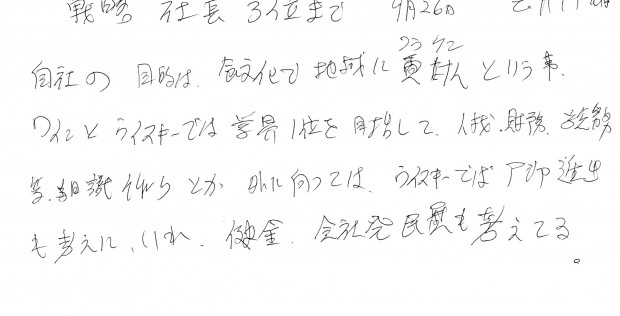 戦略 社長 3位まで 9月26日
自社の 目的は、食文化で 地域に 貢けん という事、
ワインと ウイスキーでは 業界1位を 目指して、人材、財務、
組織作り とか 外に向っては、ウイスキーでは アジア進出
も考えに、いれ、資金、会社発展も考えてる。